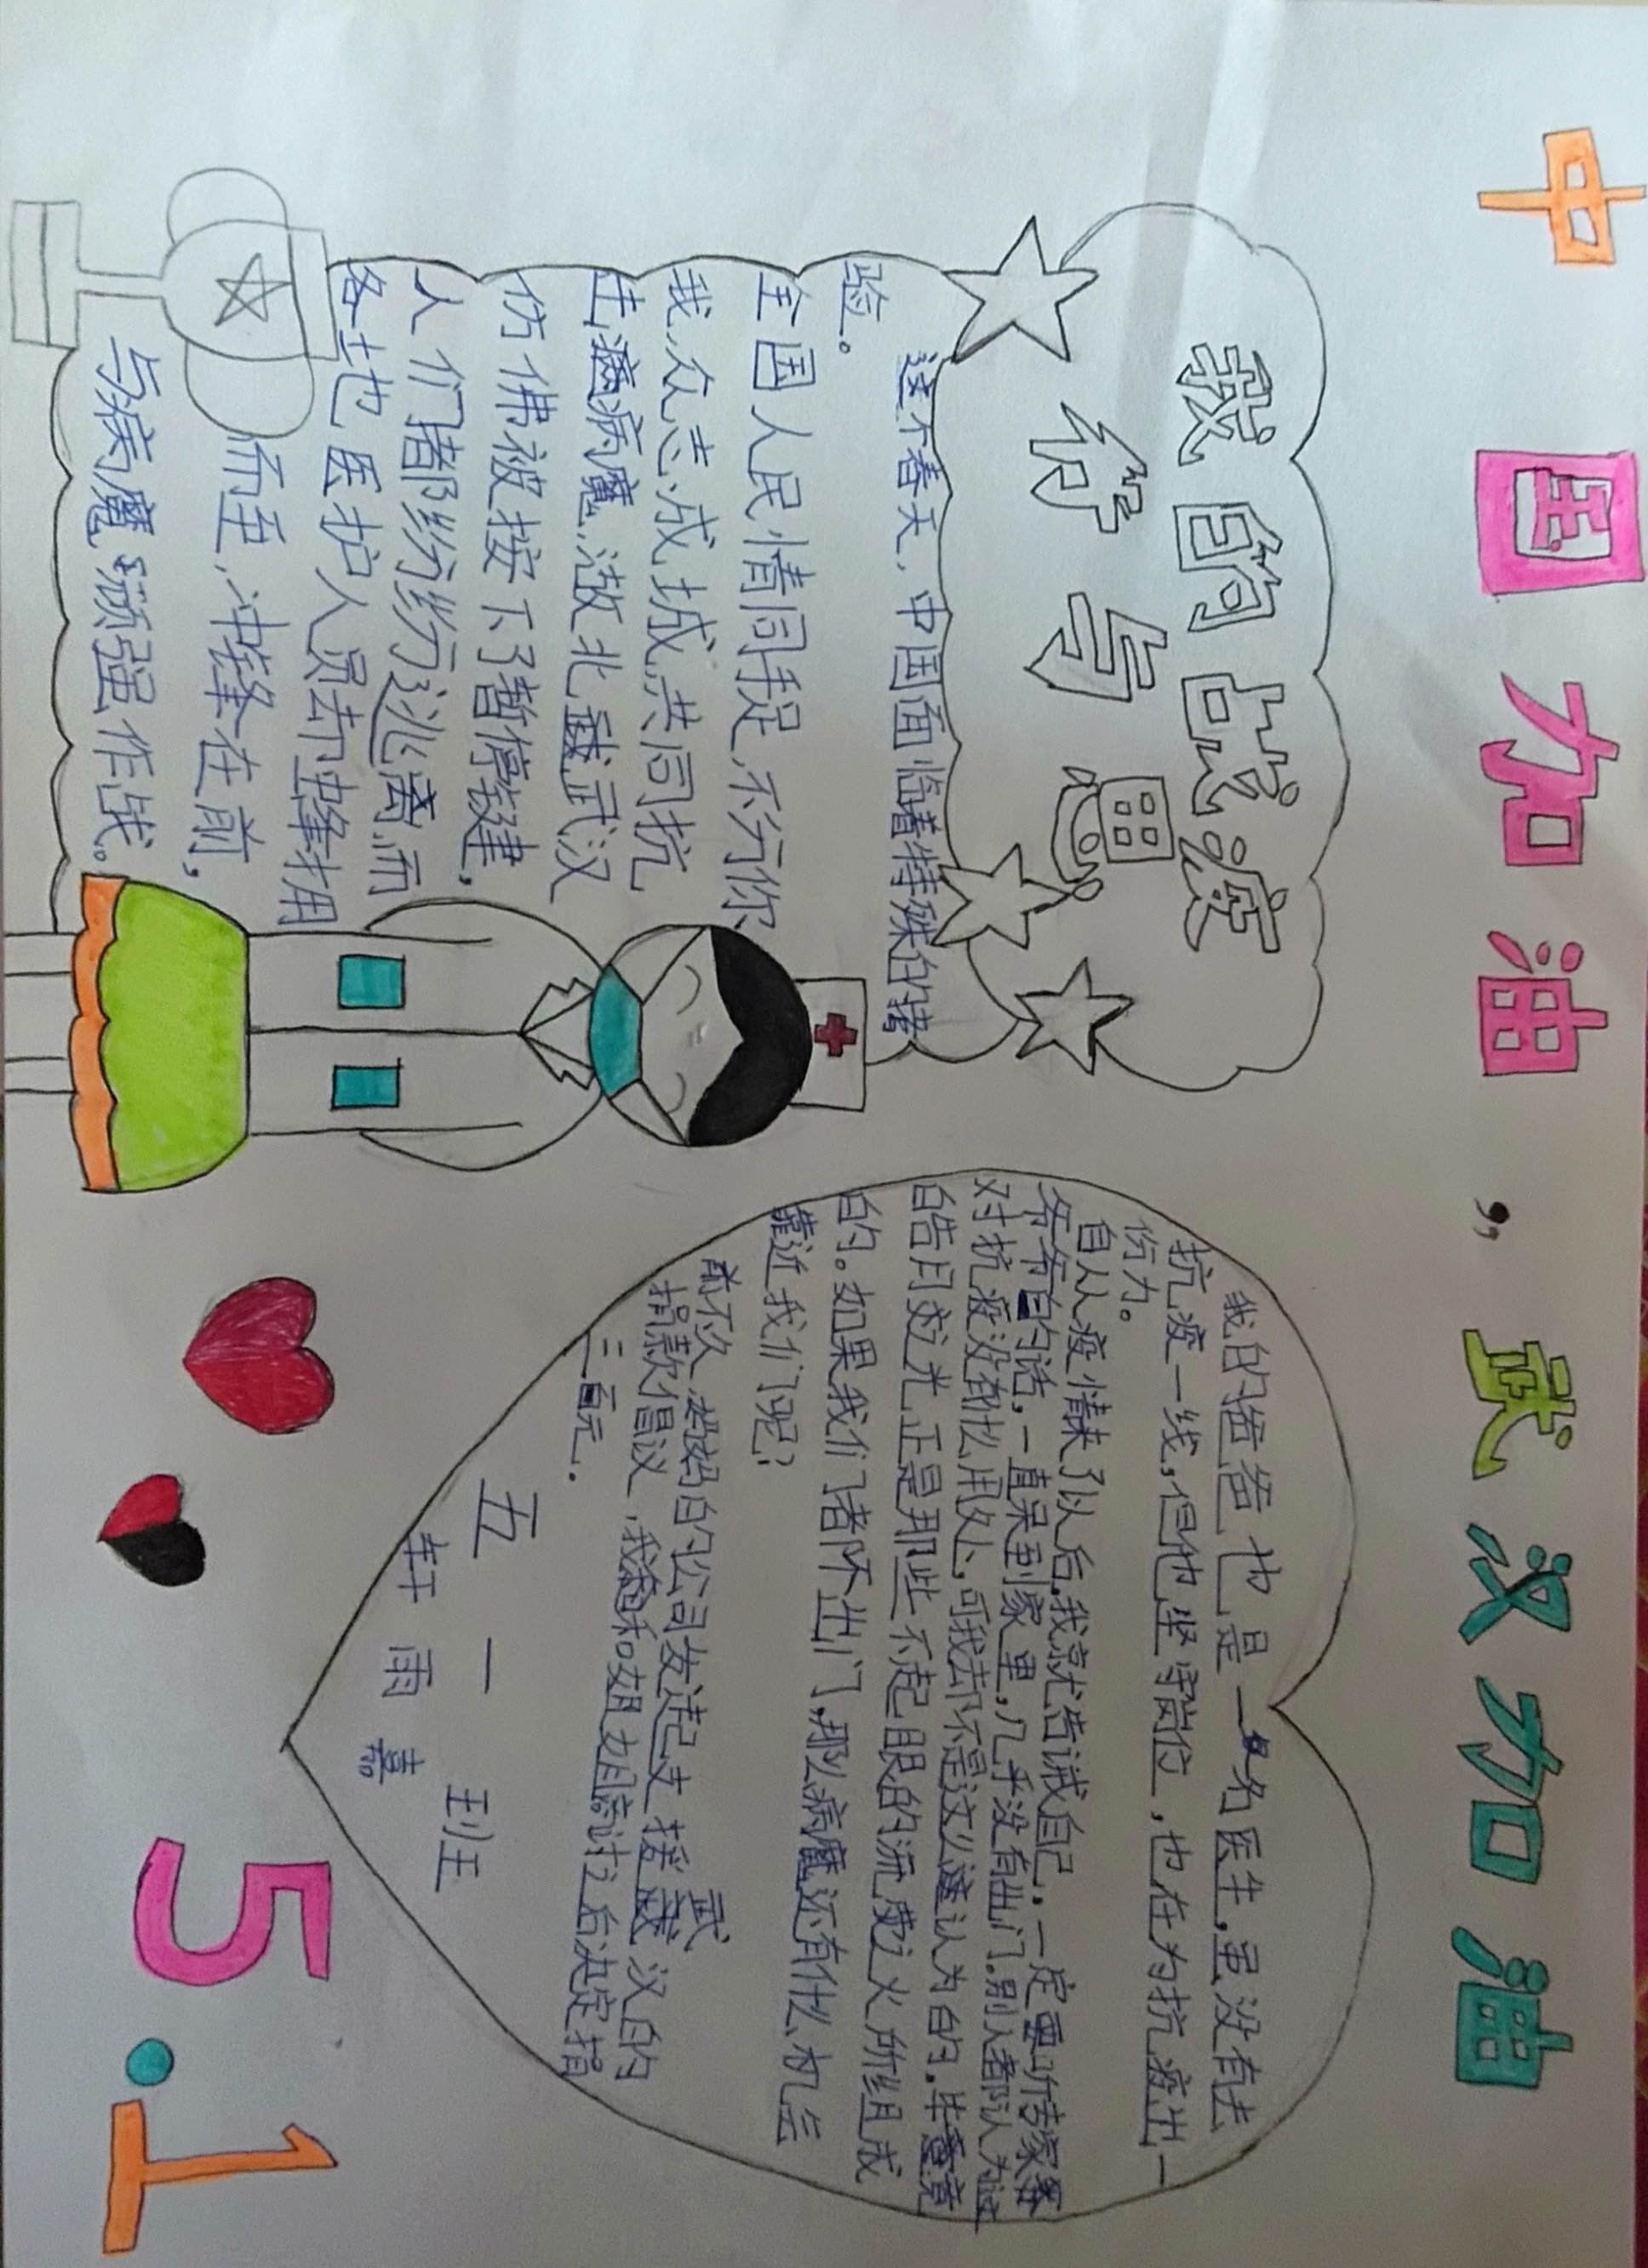 中国加油，武汉加油
我的战疫
行与思
这个春天，中国面临着特殊的考
验。
全国人民情同手足，不分你
我，众志成城，共同抗
击病魔，湖北武汉
仿佛被按下了暂停键，
人们都纷纷逃离，而
各地医护人员去蜂拥
而至，冲锋在前，
与病魔顽强作战。
我的爸爸也是一名医生，虽没有去
抗疫一线，但他坚守岗位，也在为抗疫出一
份力。
自从疫情来了以后，我就告诫自己，一定要听专家
爷爷的话，一直呆到家里，几乎没有出门。别人都认为这
对抗疫没有什么用处，可我去不是这么认为的，毕竟
皓月荧光正是那些不起眼的流废之火所组成
的。如果我们都不出门，那么病魔还有什么机会
靠近我们呢？
前不久，妈妈的公司发起支援武汉的
捐款倡议，我和姐姐商讨之后决定捐
二百元。
五 一 班
轩 雨 嘉
5.1